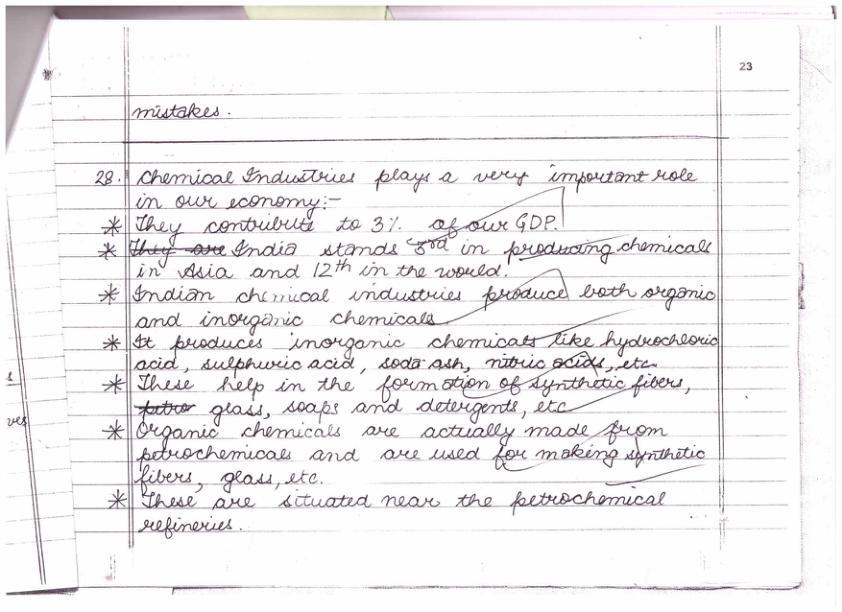 23
mistakes.
28. Chemical Industries plays a very important role
in our economy:-
* They contributs to 3% of our GDP.
* They are India stands 3rd in producing chemicals
in Asia and 12th in the world.
* Indian chemical industries produce both organic
and inorganic chemicals
* It produces inorganic chemicals like hydrochloric
acid, sulphuric acid, soda ash, nitric acids, etc.
* These help in the formation of synthetic fibers,
glass, soaps and detergents, etc
* Organic chemicals are actually made from
petrochemicals and are used for making synthetic
fibers, glass, etc.
* These are situated near the petrochemical
refineries.
s
ves